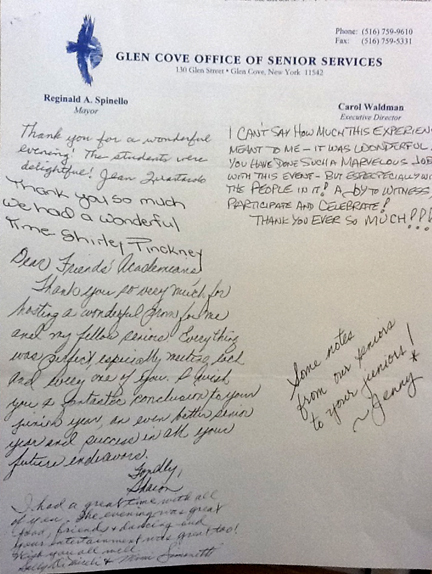 Phone: (516) 759-9610
Fax: (516) 759-5331
GLEN COVE OFFICE OF SENIOR SERVICES
130 Glen Street • Glen Cove, New York 11542
Reginald A. Spinello
Mayor
Carol Waldman
Executive Director
Thank you for a wonderful
evening! The students were
delightful! Jean
Thank you so much
we had a wonderful
time. Shirley Pinckney
I CAN'T SAY HOW MUCH THIS EXPERIEN
MEANT TO ME - IT WAS WONDERFUL.
YOU HAVE DONE SUCH A MARVELOUS JOB
WITH THIS EVENT - BUT ESPECIALLY WI
THE PEOPLE IN IT! A JOY TO WITNESS,
PARTICIPATE AND CELEBRATE!
THANK YOU EVER SO MUCH!!!
Dear Friends' Academians
Thank you so very much for
hosting a wonderful prom for me
and my fellow seniors. Everything
was perfect, especially meeting each
and every one of you. I wish
you a fantastic conclusion to your
junior year, an even better senior
year and success in all your
future endeavors.
Fondly,
Sharon
Some notes
from our seniors
to your juniors!
~ Jenny
I had a great time with all
of you. The evening was great
food, friends & dancing and
entertainment was great too!
Wish you all well
Sally &